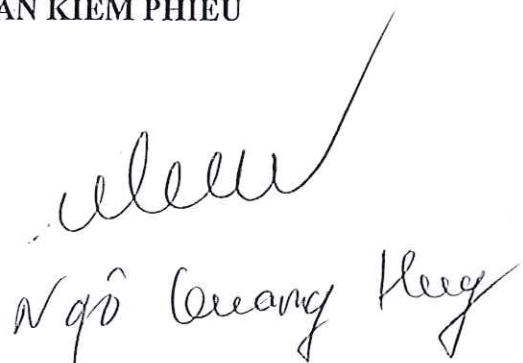 AN KIỂM PHIẾU
Ngô Quang Huy